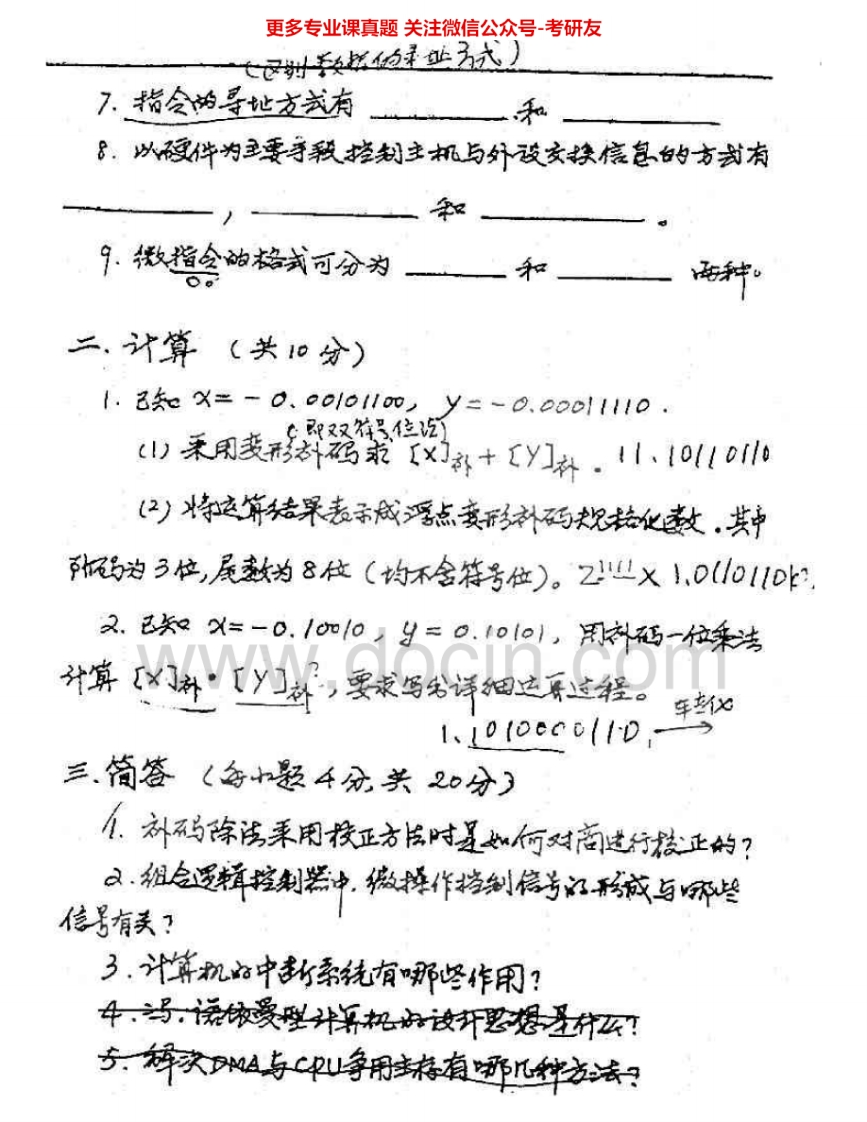 更多专业课真题 关注微信公众号-考研友
(区别数据的寻址方式)
7. 指令的寻址方式有 ________ 和 ________
8. 以硬件为主要手段控制主机与外设交换信息的方式有
________, ________ 和 ________。
9. 微指令的格式可分为 ________ 和 ________ 两种。
二. 计算 (共10分)
1. 已知 x = - 0.00101100, y = - 0.00011110.
(即双符号位法)
(1) 采用变形补码求 [X]补 + [Y]补. 11.10110110
(2) 将运算结果表示成浮点变形补码规格化数. 其中
阶码为3位, 尾数为8位 (均不含符号位)。
2. 已知 x = -0.10010, y = 0.10101, 用补码一位乘法
计算 [X]补 · [Y]补?, 要求写出详细运算过程。
www.docin.com
1.1010000110
三. 简答 (每小题4分, 共20分)
1. 补码除法采用校正方法时是如何对商进行校正的?
2. 组合逻辑控制器中, 微操作控制信号的形成与哪些
信号有关?
3. 计算机的中断系统有哪些作用?
4. 冯·诺依曼型计算机的设计思想是什么?
5. 解决DMA与CPU争用主存有哪几种方法?